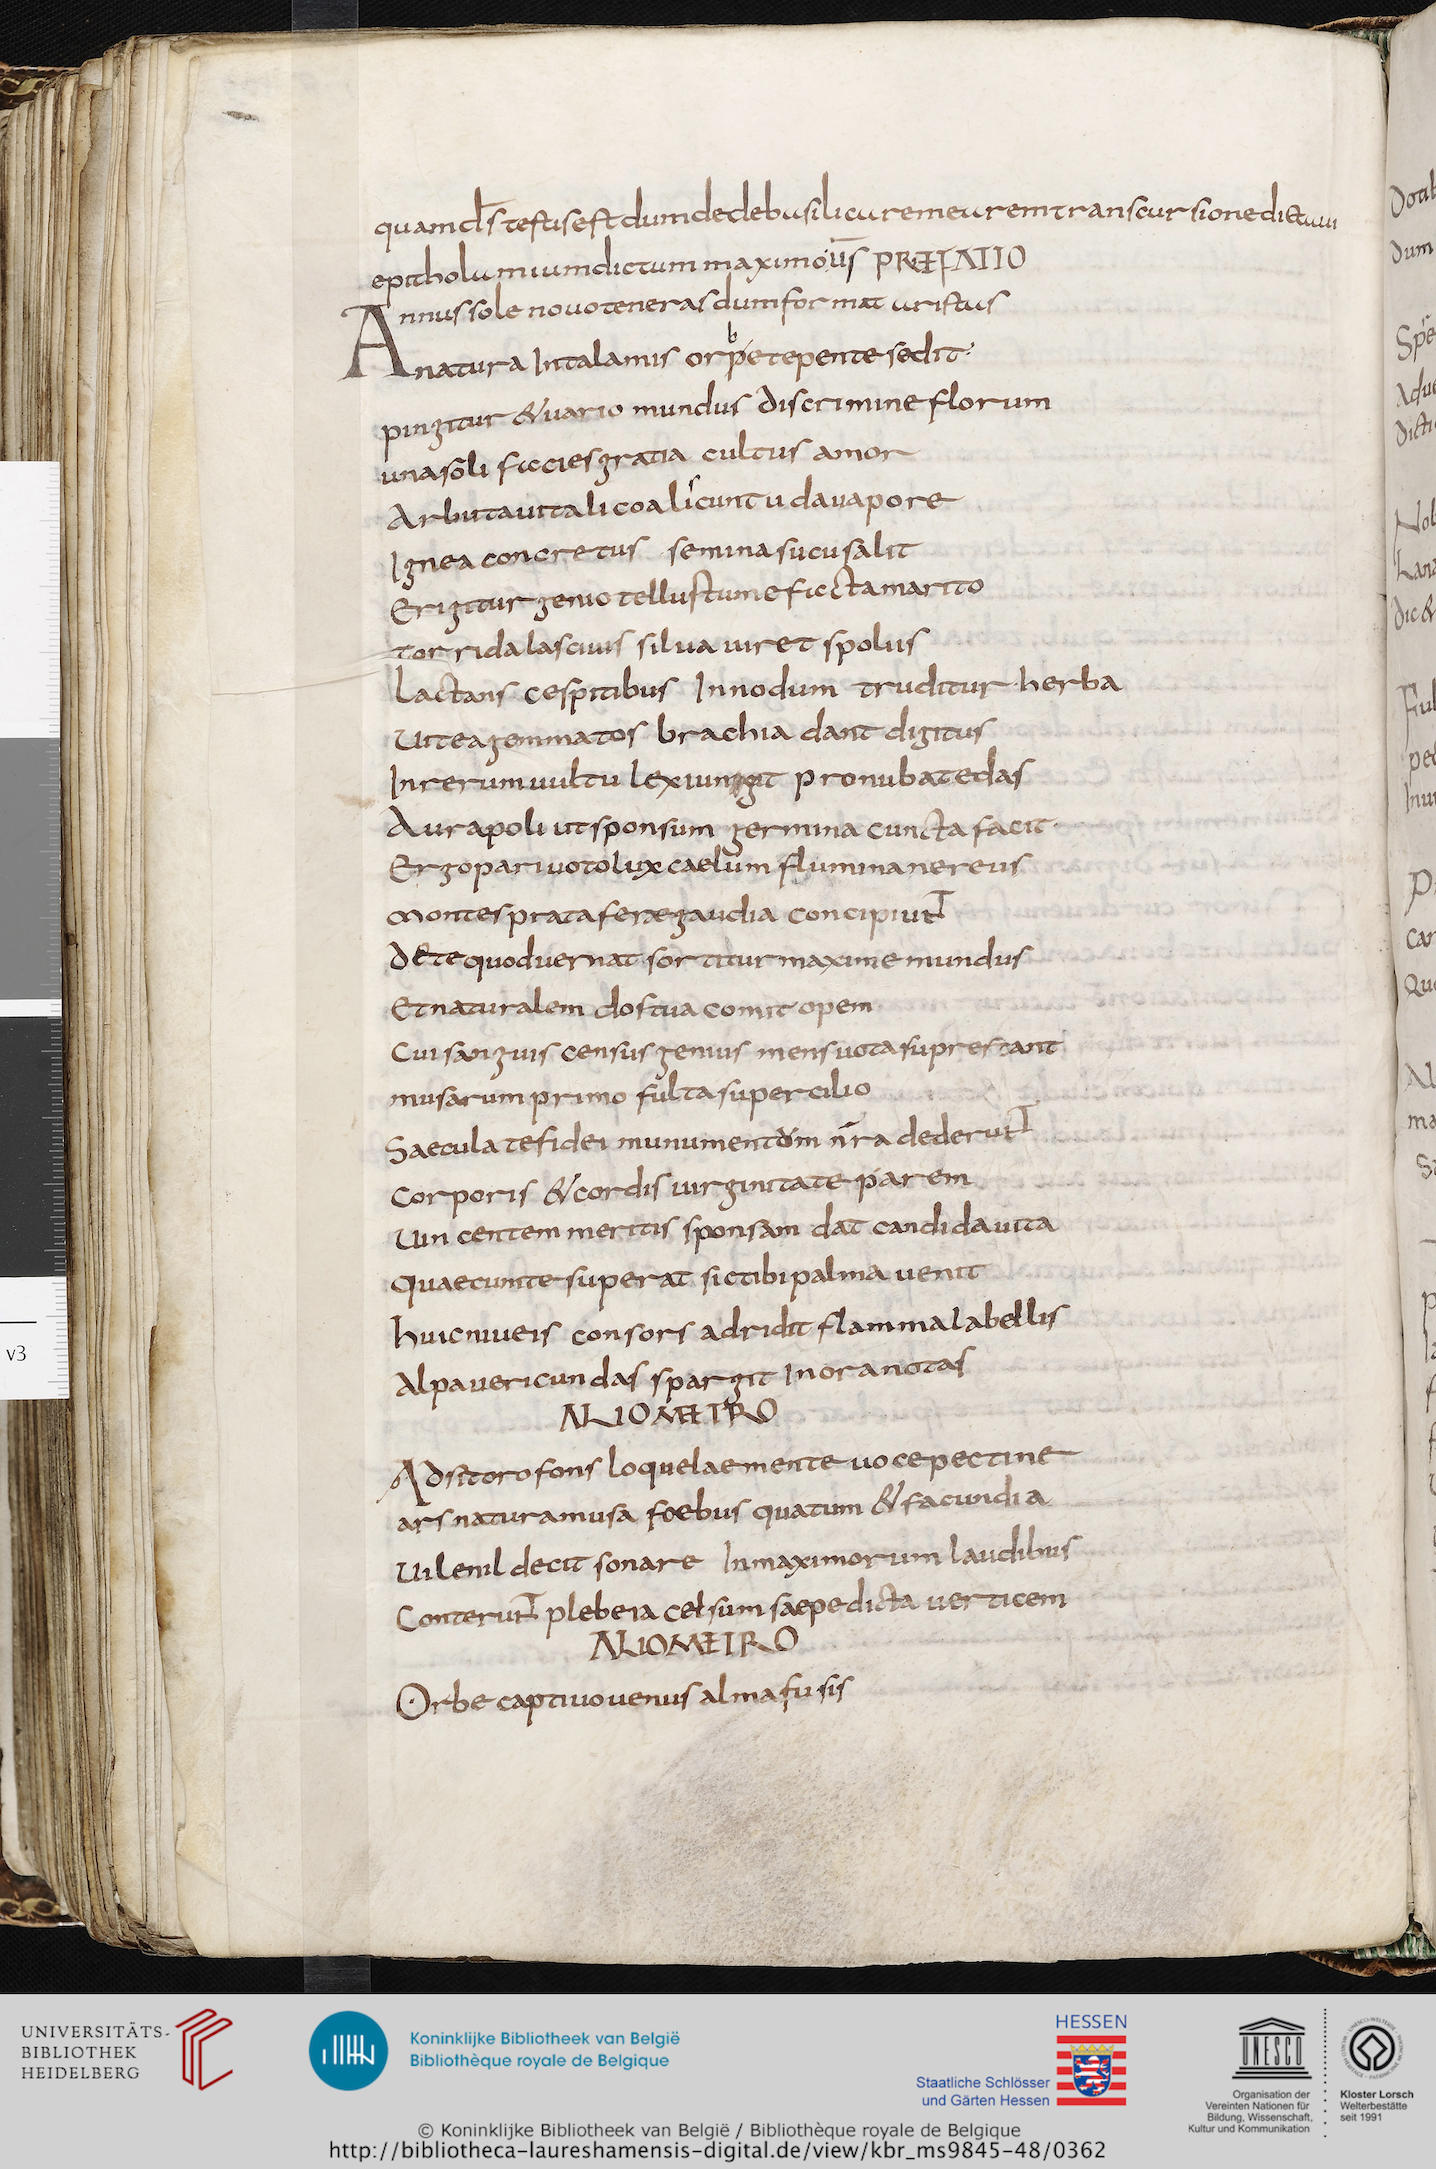 quam d̅s testis est dum de debasilica rem eurem transcursione dictaui
epitholamium dictum maximo u̅s PRÆFATIO
Annus sole nouo teneras dum format aristas
natura In talamis orbe tepente sedit
pingitur & uario mundus discrimine florum
una soli facies gratia cultus amor
Arbuta uitali coalescunt uda uapore
Ignea concretus semina sucus alit
Erigitur genio tellus tum efecta marito
torrida lasciuis silua uiret spoliis
Lactans cespitibus In nodum truditur herba
Uitea gemmatos brachia dant digitus
In rerum uultu lex iungit pronuba tedas
Aura poli ut sponsum germina cuncta facit
Ergo pari uoto lux caelum flumina nereus
montes prata ferae gaudia concipiunt
De te quod uernat sortitur maxime mundus
Et naturalem dos tua comit opem
Cui sanguis census genius mens uota suprestant
musarum primo fulta supercilio
Saecula te fidei munumentom n̅ra dederunt
corporis & cordis uirginitate parem
Uincentem meritis sponsam dat candida uita
quae cum te superat sic tibi palma uenit
huic niueis consors adridit flamma labellis
Alpa uericundas spargit In ora notas
ALIO METRO
Adsit oro fons loquelae mente uoce pectine
ars natura musa foebus quatum & facundia
Uile nil decit sonare In maximorum laudibus
Conterunt plebeia celsum saepe dicta uerticem
ALIO METRO
Orbe captiuo uenus alma fusis
v3
UNIVERSITÄTS-
BIBLIOTHEK
HEIDELBERG
Koninklijke Bibliotheek van België
Bibliothèque royale de Belgique
HESSEN
Staatliche Schlösser
und Gärten Hessen
UNESCO
Organisation der
Vereinten Nationen für
Bildung, Wissenschaft,
Kultur und Kommunikation
Kloster Lorsch
Welterbestätte
seit 1991
© Koninklijke Bibliotheek van België / Bibliothèque royale de Belgique
http://bibliotheca-laureshamensis-digital.de/view/kbr_ms9845-48/0362